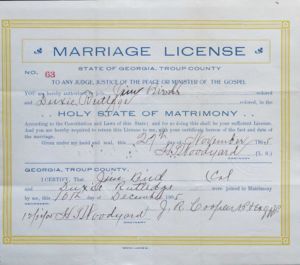 MARRIAGE LICENSE
STATE OF GEORGIA, TROUP COUNTY
NO. 63
TO ANY JUDGE, JUSTICE OF THE PEACE OR MINISTER OF THE GOSPEL
YOU are hereby authorized to join colored
and Rutledge colored, in the
HOLY STATE OF MATRIMONY
According to the Constitution and Laws of this State; and for so doing this shall be your sufficient License.
And you are hereby required to return this License to me with your certificate hereon of the fact and date of
the marriage.
Given under my hand and seal, this 29th day of November
H T Woodyard (L. S.)
GEORGIA, TROUP COUNTY.
I CERTIFY, That Bird Col
and Rutledge were joined in Matrimony
by me, this 10th day of December
H T Woodyard J. R. Cooper